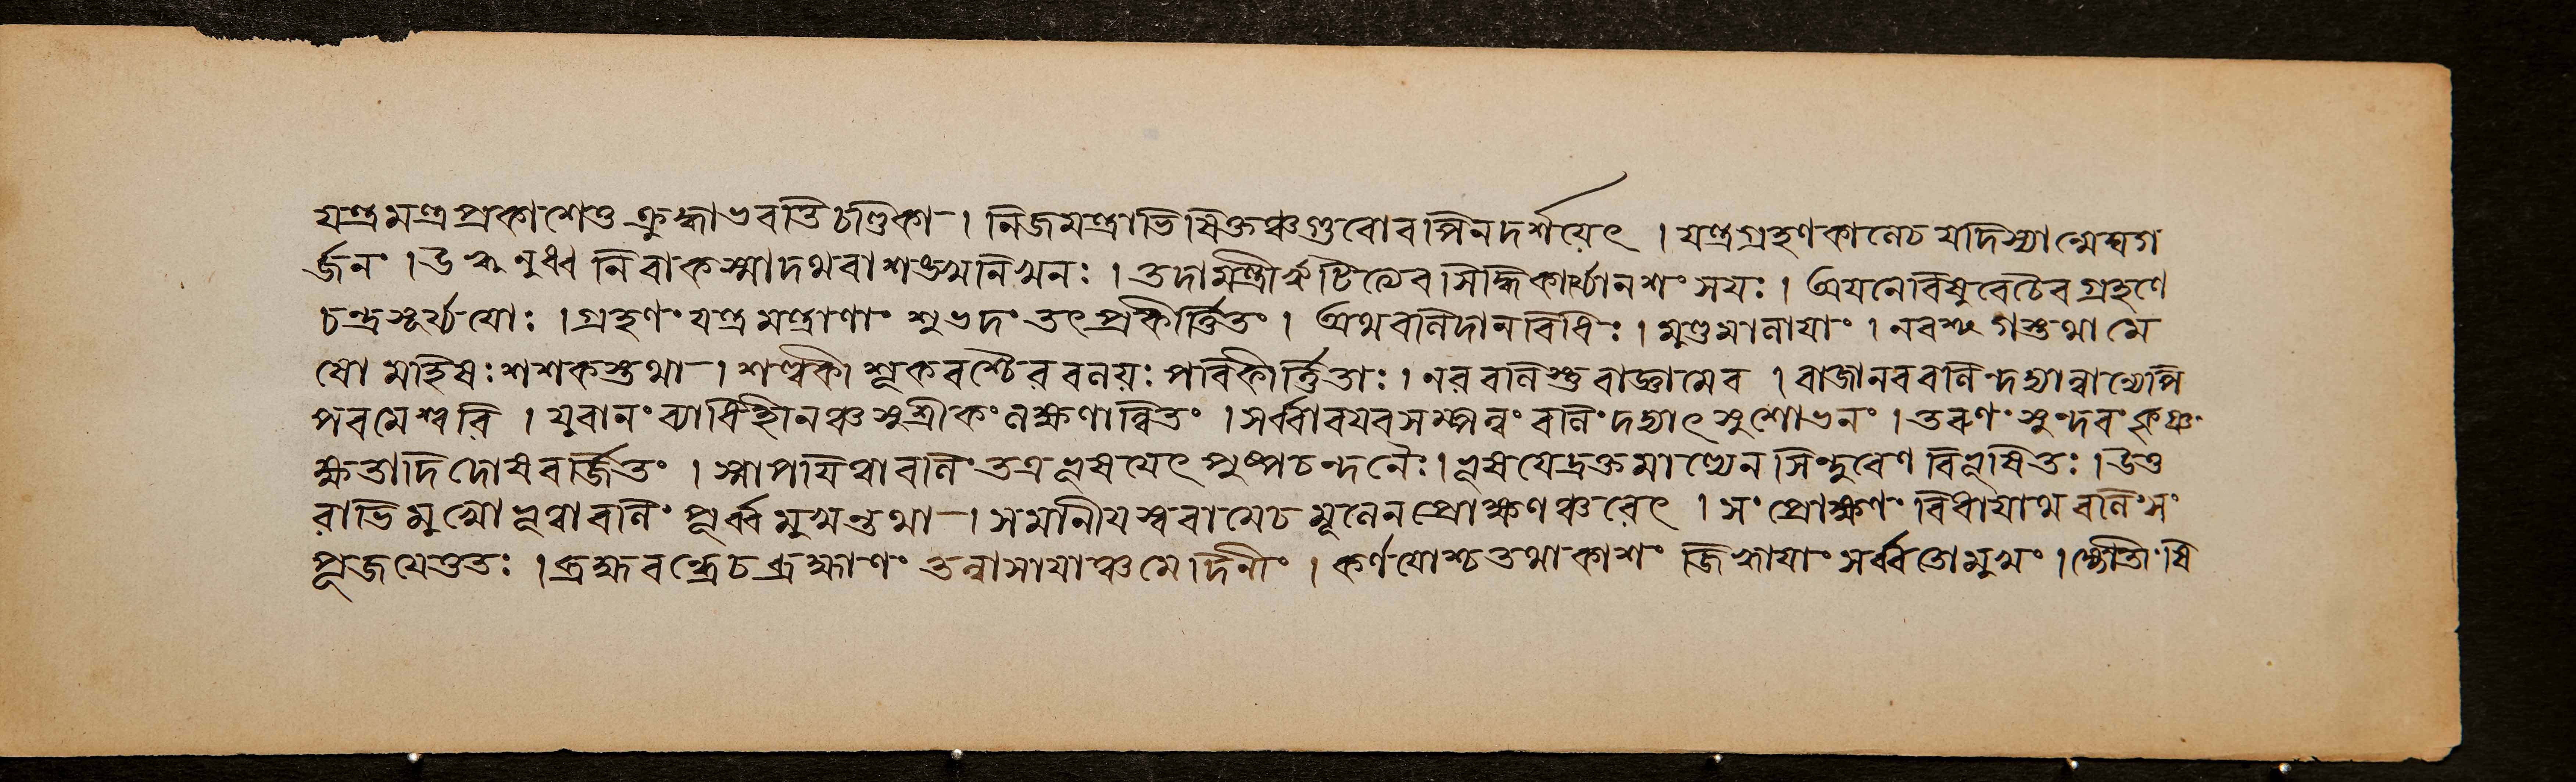 যন্ত্রমন্ত্রপ্রকাশেতু ক্রুদ্ধাভবতিচণ্ডিকা । নিজমন্ত্রাভিষিক্তঞ্চগুরোরপিনদর্শয়েৎ । যন্ত্রগ্রহণকালেচ যদিস্যান্মেঘগ
র্জনং । নিবাকস্মাদথবাশঙ্খনিস্বনঃ । তদামন্ত্রী সিদ্ধিকার্য্যানশংসযঃ । অযনেবিষুবেচৈবগ্রহণে
চন্দ্রসূর্য্যযোঃ । গ্রহণং যন্ত্রমন্ত্রাণাং শুভদং তৎপ্রকীর্ত্তিতং । অথবলিদানবিধিঃ । মুণ্ডমালাযাং । নরশ্ছাগস্তথামে
ষো মহিষঃ শশকস্তথা । শল্লকী শূকরশ্চৈব বলয়ঃ পরিকীর্ত্তিতাঃ । নরবলিস্তু রাজ্ঞামেব । রাজানরবলিন্দদ্যান্নান্যোপি
পরমেশ্বরি । যুবানং ব্যাধিহীনঞ্চ সুশ্রীকং লক্ষণান্বিতং । সর্ব্বাবযবসম্পন্নং বলিং দদ্যাৎ সুশোভনং । তরুণং সুন্দরং কৃষ্ণং
ক্ষতাদিদোষবর্জ্জিতং । স্নাপযিত্বাবলিং তত্র ভূষযেৎ পুষ্পচন্দনৈঃ । ভূষযেদ্রক্তমাল্যেন সিন্দুরেণ বিভূষিতঃ । উত্ত
রাভিমুখো ভূত্বাবলিং পূর্ব্বমুখন্তথা । সমানীযস্ববামেচ মূলেনপ্রোক্ষণঞ্চরেৎ । সংপ্রোক্ষণং বিধাযাথ বলিং সং
পূজযেত্ততঃ । ব্রহ্মরন্ধ্রেচব্রহ্মাণং তন্নাসাযাঞ্চমেদিনীং । কর্ণযোশ্চতথাকাশং জিহ্বাযাং সর্ব্বতোমুখং । জ্যোতিষি